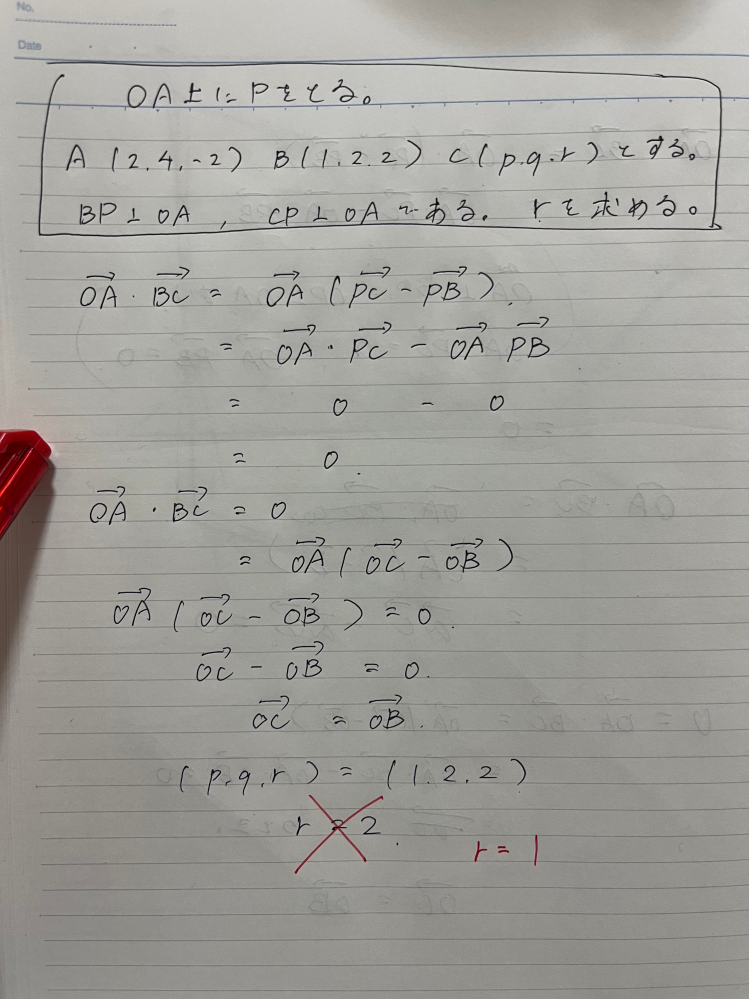 No.
Date
OA上にPをとる。
A (2.4.-2) B(1.2.2) C(p.q.r)とする。
BP⊥OA , CP⊥OAである。 rを求める。
→OA・→BC = →OA (→PC - →PB).
= →OA・→PC - →OA →PB
= 0 - 0
= 0.
→OA・→BC = 0
= →OA (→OC - →OB)
→OA (→OC - →OB) = 0.
→OC - →OB = 0.
→OC = →OB.
(p.q.r) = (1.2.2)
r = 2.
r = 1